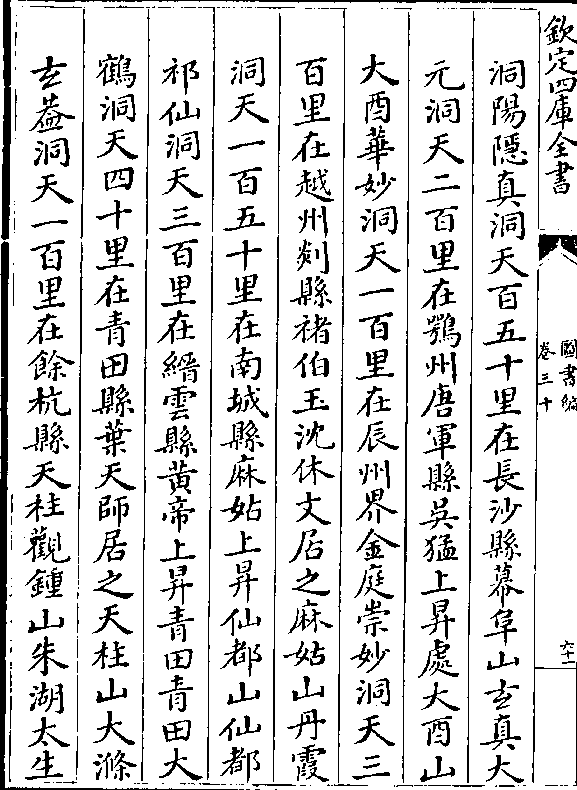 欽定四庫全書
圖書編
卷三十
六十一
洞陽隱真洞天百五十里在長沙縣幕阜山玄真大
元洞天二百里在鄂州唐軍縣吳猛上昇處大酉山
大酉華妙洞天一百里在辰州界金庭崇妙洞天三
百里在越州剡縣禇伯玉沈休文居之麻姑山丹霞
洞天一百五十里在南城縣麻姑上昇仙都山仙都
祁仙洞天三百里在縉雲縣黄帝上昇青田青田大
鶴洞天四十里在青田縣葉天師居之天柱山大滌
玄葢洞天一百里在餘杭縣天柱觀鍾山朱湖太生